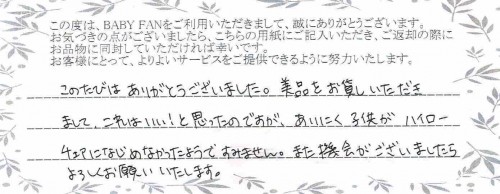 この度は、BABY FANをご利用いただきまして、誠にありがとうございます。
お気づきの点がございましたら、こちらの用紙にご記入いただき、ご返却の際に
お品物に同封していただければ幸いです。
お客様にとって、よりよいサービスをご提供できるように努力いたします。
このたびは ありがとうございました。美品をお貸しいただき
まして、これはいい！と思ったのですが、あいにく子供がハイロー
チェアになじめなかったようですみません。また機会がございましたら
よろしくお願いいたします。